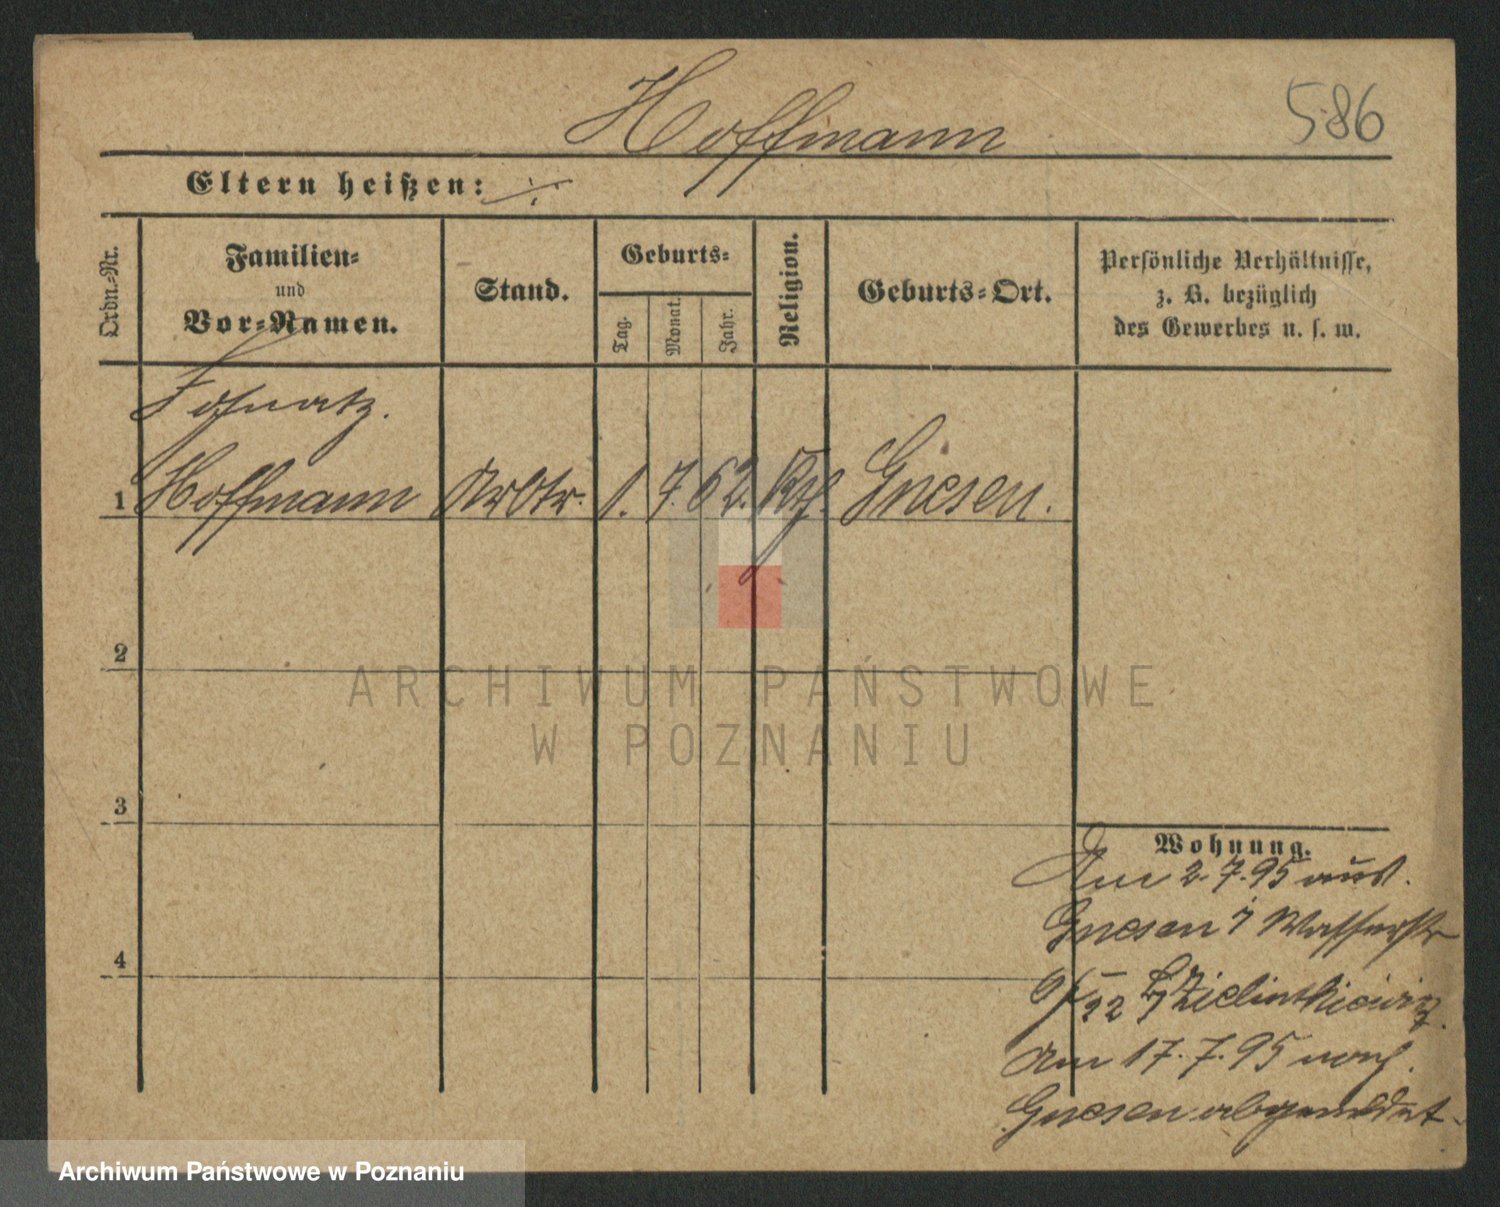 Hoffmann
586
Eltern heißen: ./.
Ordn.-Nr.
Familien-
und
Vor-Namen.
Stand.
Geburts-
Tag.
Monat.
Jahr.
Religion.
Geburts-Ort.
Persönliche Verhältnisse,
z. B. bezüglich
des Gewerbes u. s. w.
1 Hoffmann Arbtr. 1. 7. 62. Kth. Gnesen.
2
ARCHIWUM PAŃSTWOWE
W POZNANIU
3
4
Wohnung.
Am 2.7.95 aus
Gnesen Wasserstr
22
Am 17.7.95 nach
Gnesen abgemeldet.
Archiwum Państwowe w Poznaniu